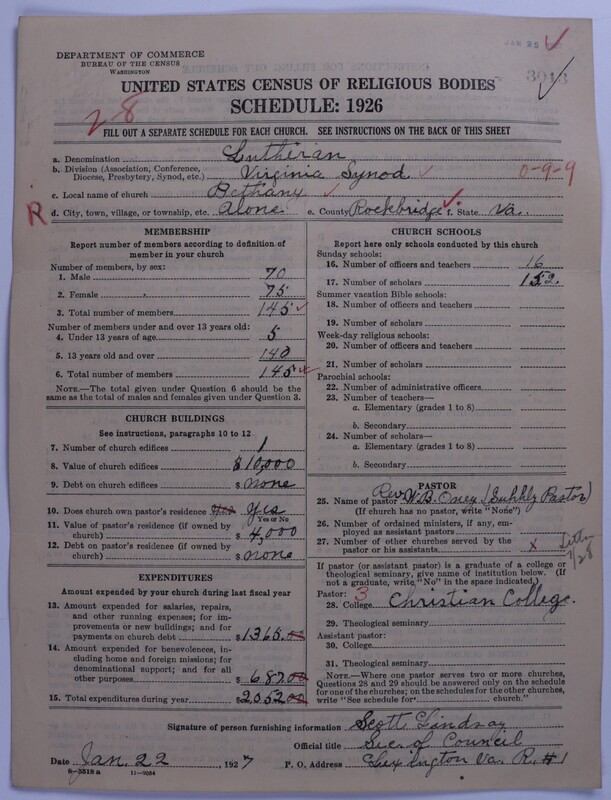 JAN 25
3013
DEPARTMENT OF COMMERCE
BUREAU OF THE CENSUS
WASHINGTON
UNITED STATES CENSUS OF RELIGIOUS BODIES
SCHEDULE: 1926
28
FILL OUT A SEPARATE SCHEDULE FOR EACH CHURCH. SEE INSTRUCTIONS ON THE BACK OF THIS SHEET
a. Denomination Lutheran
b. Division (Association, Conference, Diocese, Presbytery, Synod, etc.) Virginia Synod 0-9-9
c. Local name of church Bethany
R d. City, town, village, or township, etc. Alone e. County Rockbridge f. State Va.
MEMBERSHIP
Report number of members according to definition of
member in your church
Number of members, by sex:
1. Male 70
2. Female 75
3. Total number of members 145
Number of members under and over 13 years old:
4. Under 13 years of age 5
5. 13 years old and over 140
6. Total number of members 145
NOTE.—The total given under Question 6 should be
same as the total of males and females given under Question 3.
CHURCH BUILDINGS
See instructions, paragraphs 10 to 12
7. Number of church edifices 1
8. Value of church edifices $ 10,000
9. Debt on church edifices $ none
10. Does church own pastor's residence Yes
Yes or No
11. Value of pastor's residence (if owned by
church) $ 4,000
12. Debt on pastor's residence (if owned by
church) $ none
EXPENDITURES
Amount expended by your church during last fiscal year
13. Amount expended for salaries, repairs,
and other running expenses; for im-
provements or new buildings; and for
payments on church debt $ 1365.00
14. Amount expended for benevolences,
including home and foreign missions; for
denominational support; and for all
other purposes $ 687.00
15. Total expenditures during year $ 2052.00
CHURCH SCHOOLS
Report here only schools conducted by this church
Sunday schools:
16. Number of officers and teachers 16
17. Number of scholars 152
Summer vacation Bible schools:
18. Number of officers and teachers
19. Number of scholars
Week-day religious schools:
20. Number of officers and teachers
21. Number of scholars
Parochial schools:
22. Number of administrative officers
23. Number of teachers—
a. Elementary (grades 1 to 8)
b. Secondary
24. Number of scholars—
a. Elementary (grades 1 to 8)
b. Secondary
PASTOR
25. Name of pastor Rev. W.B. (Supply Pastor)
(If church has no pastor, write "None")
26. Number of ordained ministers, if any, em-
ployed as assistant pastors
27. Number of other churches served by the
pastor or his assistants x
If pastor (or assistant pastor) is a graduate of a college or
theological seminary, give name of institution below. (If
not a graduate, write "No" in the space indicated.)
Pastor: 3
28. College Christian College.
29. Theological seminary
Assistant pastor:
30. College
31. Theological seminary
NOTE.—Where one pastor serves two or more churches,
Questions 28 and 29 should be answered only on the schedule
for one of the churches; on the schedules for the other churches,
write "See schedule for church."
Signature of person furnishing information Scott Lindsay
Official title Sec. of Council
Date Jan. 22 , 1927 P. O. Address Lexington Va. R. #1
8-5518 a 11-9084